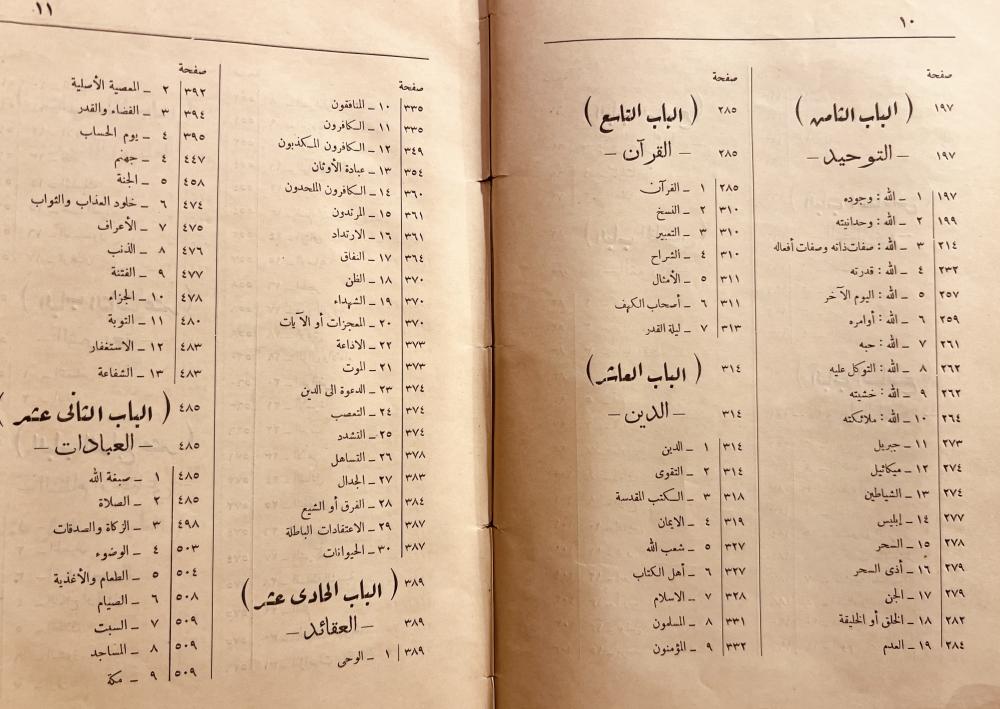 ١٠
صفحة
١٩٧ ( الباب الثامن )
١٩٧ – التوحيد –
١٩٧ ١ – الله : وجوده
١٩٩ ٢ – الله : وحدانيته
٢١٤ ٣ – الله : صفات ذاته وصفات أفعاله
٢٣٢ ٤ – الله : قدرته
٢٥٧ ٥ – الله : اليوم الآخر
٢٥٩ ٦ – الله : أوامره
٢٦١ ٧ – الله : حبه
٢٦٢ ٨ – الله : التوكل عليه
٢٦٢ ٩ – الله : خشيته
٢٦٤ ١٠ – الله : ملائكته
٢٧٣ ١١ – جبريل
٢٧٤ ١٢ – ميكائيل
٢٧٤ ١٣ – الشياطين
٢٧٧ ١٤ – إبليس
٢٧٨ ١٥ – السحر
٢٧٩ ١٦ – أذى السحر
٢٧٩ ١٧ – الجن
٢٨٢ ١٨ – الخلق أو الخليقة
٢٨٤ ١٩ – العدم
صفحة
٢٨٥ ( الباب التاسع )
٢٨٥ – القرآن –
٢٨٥ ١ – القرآن
٣١٠ ٢ – النسخ
٣١٠ ٣ – التعبير
٣١٠ ٤ – الشراح
٣١١ ٥ – الأمثال
٣١١ ٦ – أصحاب الكهف
٣١٣ ٧ – ليلة القدر
٣١٤ ( الباب العاشر )
٣١٤ – الدين –
٣١٤ ١ – الدين
٣١٤ ٢ – التقوى
٣١٨ ٣ – الكتب المقدسة
٣١٩ ٤ – الايمان
٣٢٧ ٥ – شعب الله
٣٢٧ ٦ – أهل الكتاب
٣٢٨ ٧ – الاسلام
٣٣١ ٨ – المسلمون
٣٣٢ ٩ – المؤمنون
١١
صفحة
٣٣٥ ١٠ – المنافقون
٣٣٥ ١١ – الكافرون
٣٤٩ ١٢ – الكافرون المكذبون
٣٥٤ ١٣ – عبادة الأوثان
٣٦٠ ١٤ – الكافرون الملحدون
٣٦١ ١٥ – المرتدون
٣٦١ ١٦ – الارتداد
٣٦٤ ١٧ – النفاق
٣٧٠ ١٨ – الظن
٣٧٠ ١٩ – الشهداء
٣٧٠ ٢٠ – المعجزات أو الآيات
٣٧٣ ٢٢ – الاذاعة
٣٧٣ ٢١ – الموت
٣٧٤ ٢٣ – الدعوة الى الدين
٣٧٤ ٢٤ – التعصب
٣٧٤ ٢٥ – التشدد
٣٧٨ ٢٦ – التساهل
٣٨٣ ٢٧ – الجدال
٣٨٤ ٢٨ – الفرق أو الشيع
٣٨٧ ٢٩ – الاعتقادات الباطلة
٣٨٧ ٣٠ – الحيوانات
٣٨٩ ( الباب الحادى عشر )
٣٨٩ – العقائد –
٣٨٩ ١ – الوحى
صفحة
٣٩٢ ٢ – المعصية الأصلية
٣٩٤ ٣ – القضاء والقدر
٣٩٥ ٤ – يوم الحساب
٤٤٧ ٤ – جهنم
٤٥٨ ٥ – الجنة
٤٧٤ ٦ – خلود العذاب والثواب
٤٧٥ ٧ – الأعراف
٤٧٦ ٨ – الذنب
٤٧٧ ٩ – الفتنة
٤٧٨ ١٠ – الجزاء
٤٨٠ ١١ – التوبة
٤٨٣ ١٢ – الاستغفار
٤٨٣ ١٣ – الشفاعة
٤٨٥ ( الباب الثانى عشر )
٤٨٥ – العبادات –
٤٨٥ ١ – صبغة الله
٤٨٥ ٢ – الصلاة
٤٩٨ ٣ – الزكاة والصدقات
٥٠٣ ٤ – الوضوء
٥٠٤ ٥ – الطعام والأغذية
٥٠٨ ٦ – الصيام
٥٠٩ ٧ – السبت
٥٠٩ ٨ – المساجد
٥٠٩ ٩ – مكة